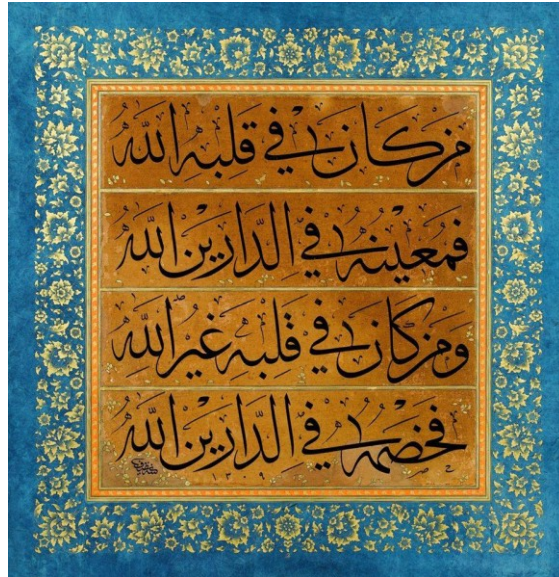 مَنْ كَانَ فِي قَلْبِهِ اللّٰهُ
فَمُعِينُهُ فِي الدَّارَيْنِ اللّٰهُ
وَمَنْ كَانَ فِي قَلْبِهِ غَيْرُ اللّٰهِ
فَخَصْمُهُ فِي الدَّارَيْنِ اللّٰهُ
١٣٠٩